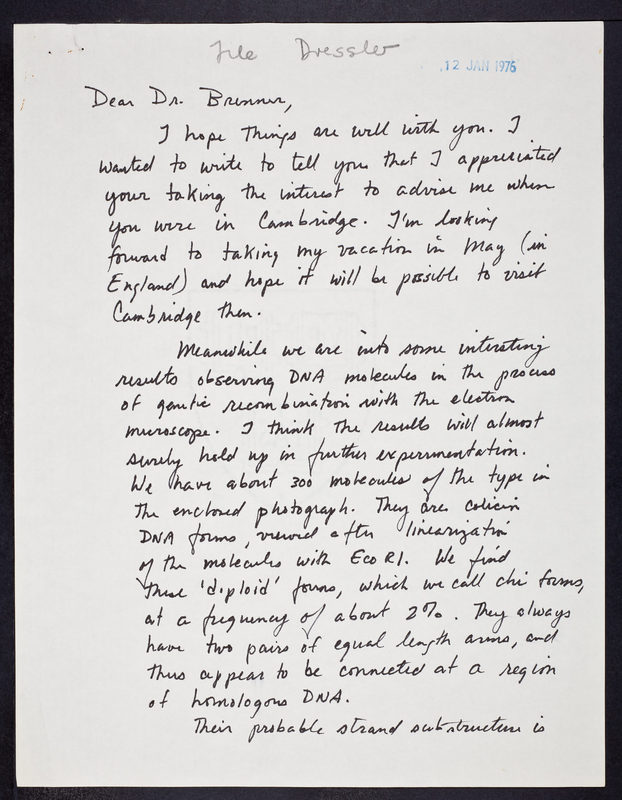 File Dressler
12 JAN 1976
Dear Dr. Brenner,
I hope things are well with you. I
wanted to write to tell you that I appreciated
your taking the interest to advise me when
you were in Cambridge. I'm looking
forward to taking my vacation in May (in
England) and hope it will be possible to visit
Cambridge then.
Meanwhile we are into some interesting
results observing DNA molecules in the process
of genetic recombination with the electron
microscope. I think the results will almost
surely hold up in further experimentation.
We have about 300 molecules of the type in
the enclosed photograph. They are colicin
DNA forms, viewed after linearization
of the molecules with Eco R1. We find
these 'diploid' forms, which we call chi forms,
at a frequency of about 2%. They always
have two pairs of equal length arms, and
thus appear to be connected at a region
of homologous DNA.
Their probable strand substructure is